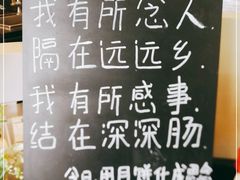 我有所念人.
隔在远远乡.
我有所感事.
结在深深肠.